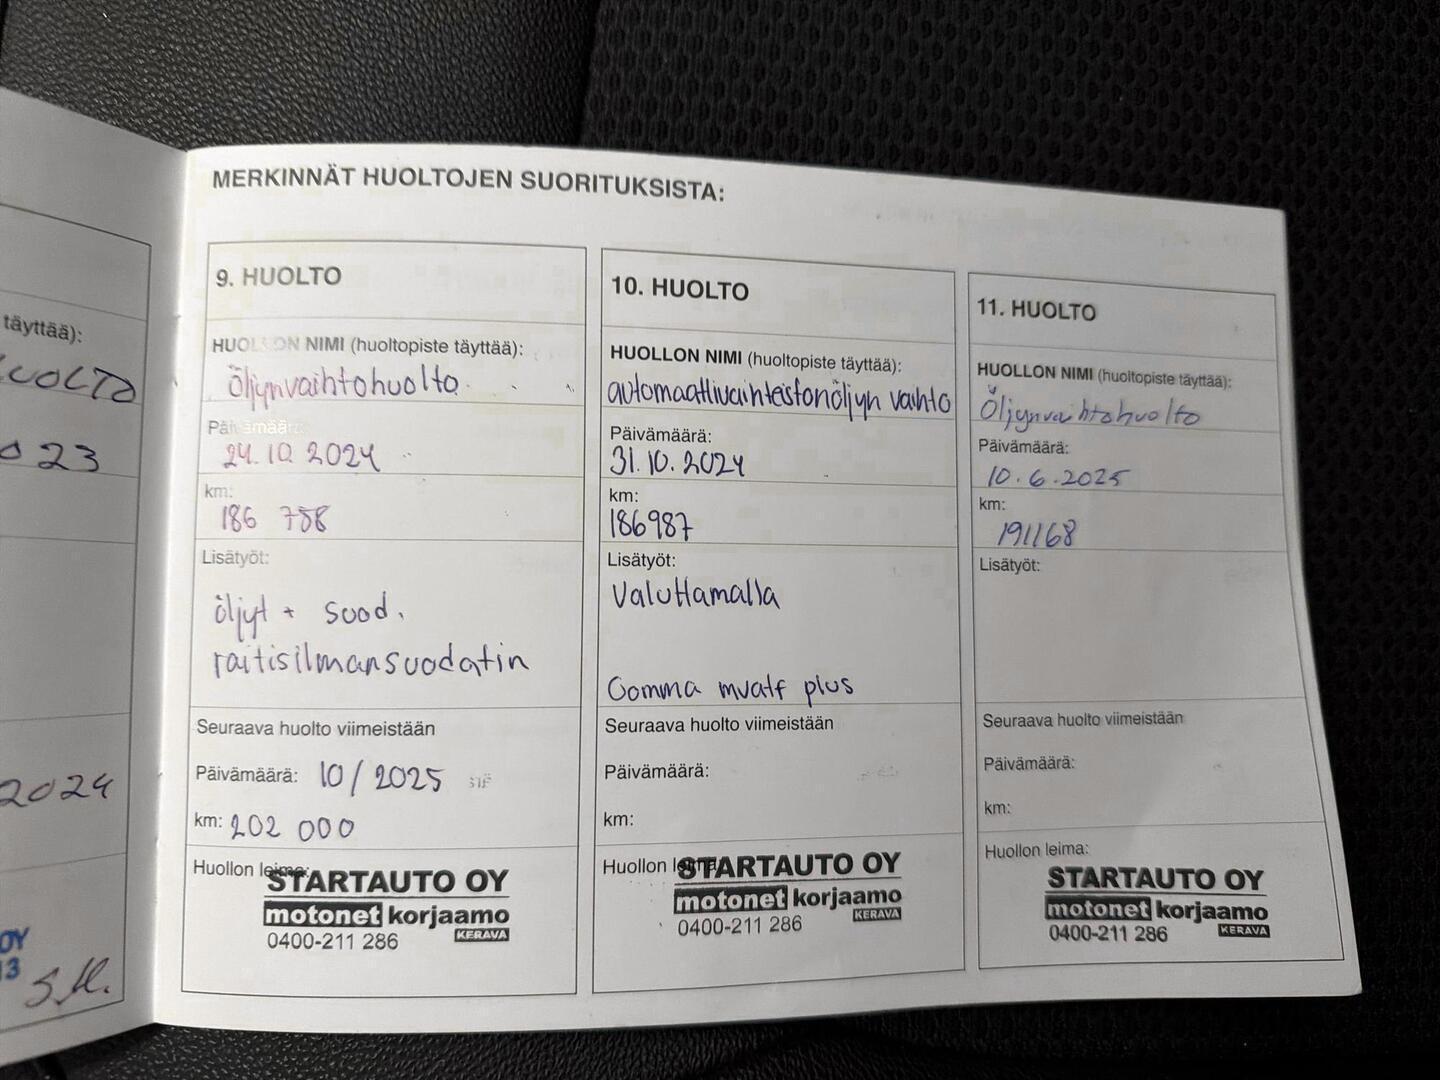 täyttää):
UOLTO
023
2024
OY
13
S.H.
MERKINNÄT HUOLTOJEN SUORITUKSISTA:
9. HUOLTO
HUOLLON NIMI (huoltopiste täyttää):
Öljynvaihtohuolto
Päivämäärä:
24.10.2024
km:
186 758
Lisätyöt:
öljyt + suod.
raitisilmansuodatin
Seuraava huolto viimeistään
Päivämäärä: 10/2025
km: 202 000
Huollon leima:
STARTAUTO OY
motonet korjaamo
0400-211 286 KERAVA
10. HUOLTO
HUOLLON NIMI (huoltopiste täyttää):
automaattivaihteistonöljyn vaihto
Päivämäärä:
31.10.2024
km:
186987
Lisätyöt:
Valuttamalla
Comma mvatf plus
Seuraava huolto viimeistään
Päivämäärä:
km:
Huollon leima:
STARTAUTO OY
motonet korjaamo
0400-211 286 KERAVA
11. HUOLTO
HUOLLON NIMI (huoltopiste täyttää):
Öljynvaihtohuolto
Päivämäärä:
10.6.2025
km:
191168
Lisätyöt:
Seuraava huolto viimeistään
Päivämäärä:
km:
Huollon leima:
STARTAUTO OY
motonet korjaamo
0400-211 286 KERAVA